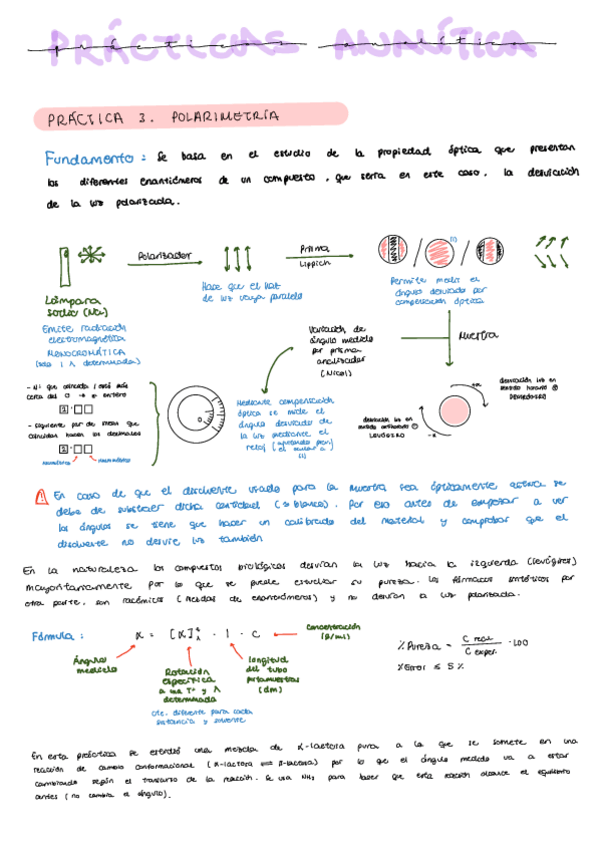 PRÁCTICAS ANALÍTICA
prácticas analítica
PRÁCTICA 3. POLARIMETRÍA
Fundamento: Se basa en el estudio de la propiedad óptica que presentan
los diferentes enantiómeros de un compuesto, que sería en este caso, la desviación
de la luz polarizada.
Polarizador
Prisma
Lippich
(1)
Lámpara
sodio (Na)
Emite radiación
electromagnética
MONOCROMÁTICA
(solo 1 λ determinada)
Hace que el haz
de luz vaya paralelo
Permite medir el
ángulo desviado por
compensación óptica
Variación de
ángulo medido
por prisma
analizador
(Nicol)
Muestra
- Nº que coincide / está más
cerca del 0 → nº entero
- Siguiente par de líneas que
coincidan hacen los decimales
Mediante compensación
óptica se mide el
ángulo desviado de
la luz mediante el
reloj
(1)
+α
desviación luz en
sentido horario
DEXTRÓGIRO
desviación luz en
sentido antihorario
LEVÓGIRO
-α
En caso de que el disolvente usado para la muestra sea ópticamente activa se
debe de sustraer dicha cantidad (→ blanco). Por eso antes de empezar a ver
los ángulos se tiene que hacer un calibrado del material y comprobar que el
disolvente no desvíe luz también
En la naturaleza los compuestos biológicos desvían la luz hacia la izquierda (levógiros)
mayoritariamente por lo que se puede estudiar su pureza. Los fármacos sintéticos por
otra parte, son racémicos (mezclas de enantiómeros) y no desvían a luz polarizada.
Fórmula:
α = [α] · l · c
concentración
(g/mL)
Ángulo
medido
Rotación
específica
a una Tª y λ
determinada
longitud
del tubo
portamuestras
(dm)
cte. diferente para cada
sustancia y solvente
% Pureza = C real / C exper. · 100
% Error ≤ 5%
En esta práctica se estudió una mezcla de α-lactosa pura a la que se somete en una
reacción de cambio conformacional (α-lactosa ⇌ β-lactosa) por lo que el ángulo medido va a estar
cambiando según el transcurso de la reacción. Se usa NH₃ para hacer que esta reacción alcance el equilibrio
antes (no cambia el ángulo).